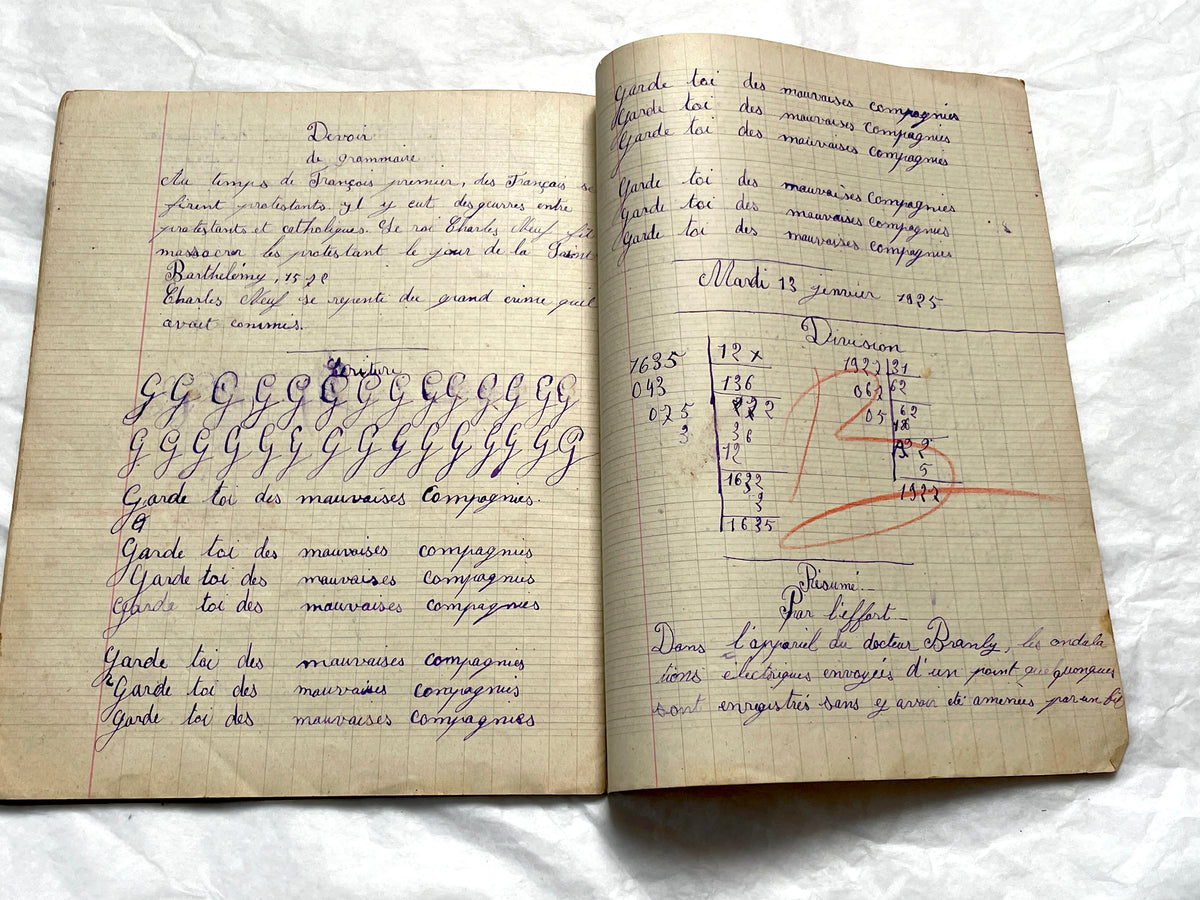 Devoir
de grammaire
Au temps de François premier, des Français se
firent protestants. Il y eut des guerres entre
protestants et catholiques. Le roi Charles Neuf fit
massacrer les protestant le jour de la Saint
Barthélémy, 1572
Charles Neuf se repentit du grand crime quil
avait commis.
Ecriture
G G G G G G G G G G G G G G
G G G G G G G G G G G G G G
Garde toi des mauvaises compagnies.
G
Garde toi des mauvaises compagnies
Garde toi des mauvaises compagnies
Garde toi des mauvaises compagnies
Garde toi des mauvaises compagnies
Garde toi des mauvaises compagnies
Garde toi des mauvaises compagnies
Garde toi des mauvaises compagnies
Garde toi des mauvaises compagnies
Garde toi des mauvaises compagnies
Garde toi des mauvaises compagnies
Garde toi des mauvaises compagnies
Garde toi des mauvaises compagnies
Mardi 13 jenvier 1925
Division
1635 12 x
043 136
075
3 36
12
1632
3
1635
1927 31
067 62
05 62
5
1927
B
Résumé.
Par l'effort
Dans l'appareil du docteur Branly, les ondula
tions électriques envoyées d'un point quelquonques
sont enregistrés sans y avoir été amenées par un fil